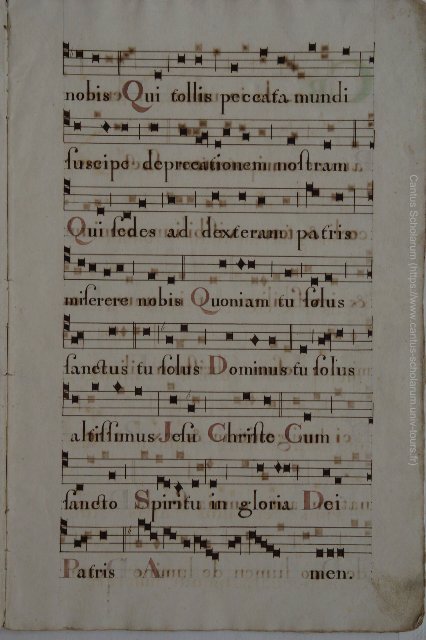 nobis Qui tollis peccata mundi
suscipe deprecationem nostram
Qui sedes ad dexteram patris
miserere nobis Quoniam tu solus
sanctus tu solus Dominus tu solus
altissimus Jesu Christe Cum
sancto Spiritu in gloria Dei
Patris Amen.
Cantus Scholarum (https://www.cantus-scholarum.univ-tours.fr)